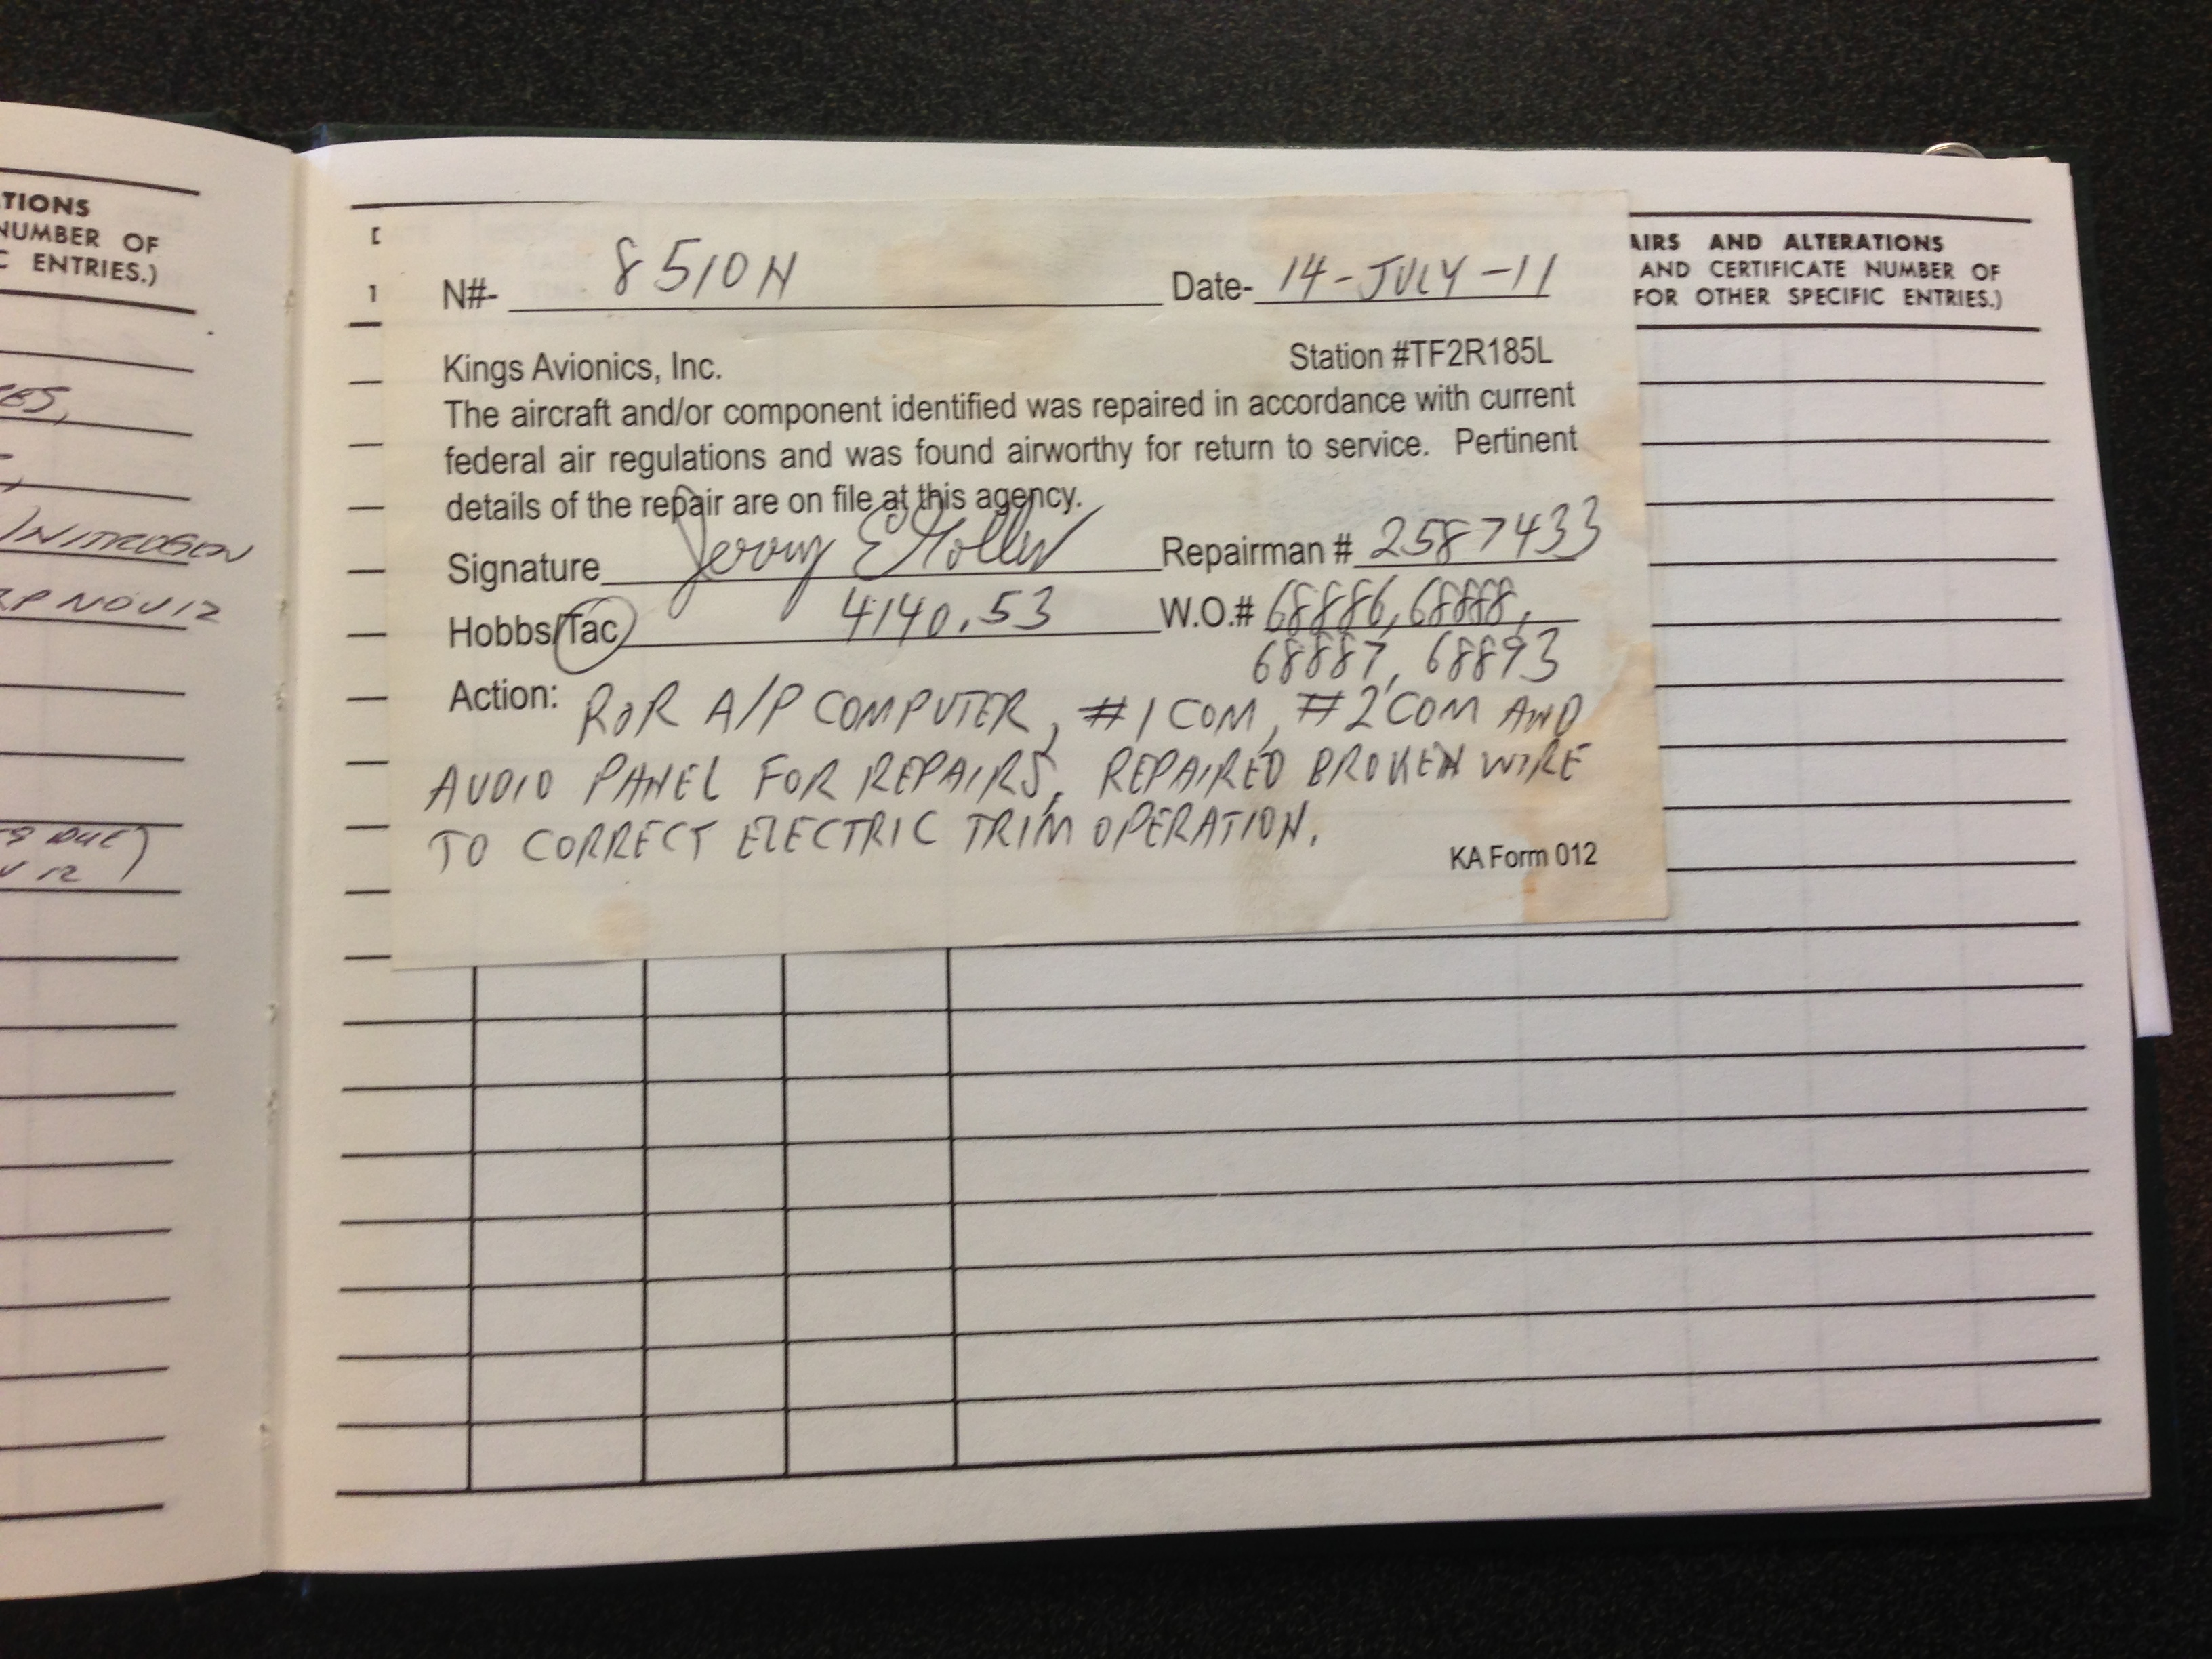 TIONS
NUMBER OF
C ENTRIES.)
ES,
NITROGEN
NOV12
DUE)
12)
N#- 8510N Date- 14-JULY-11
Kings Avionics, Inc. Station #TF2R185L
The aircraft and/or component identified was repaired in accordance with current
federal air regulations and was found airworthy for return to service. Pertinent
details of the repair are on file at this agency.
Signature Jerry E Holler Repairman # 2587433
Hobbs/Tac 4140.53 W.O.# 68886, 68888,
68887, 68893
Action: R&R A/P COMPUTER, #1 COM, #2 COM AND
AUDIO PANEL FOR REPAIRS. REPAIRED BROKEN WIRE
TO CORRECT ELECTRIC TRIM OPERATION.
KA Form 012
AIRS AND ALTERATIONS
AND CERTIFICATE NUMBER OF
FOR OTHER SPECIFIC ENTRIES.)